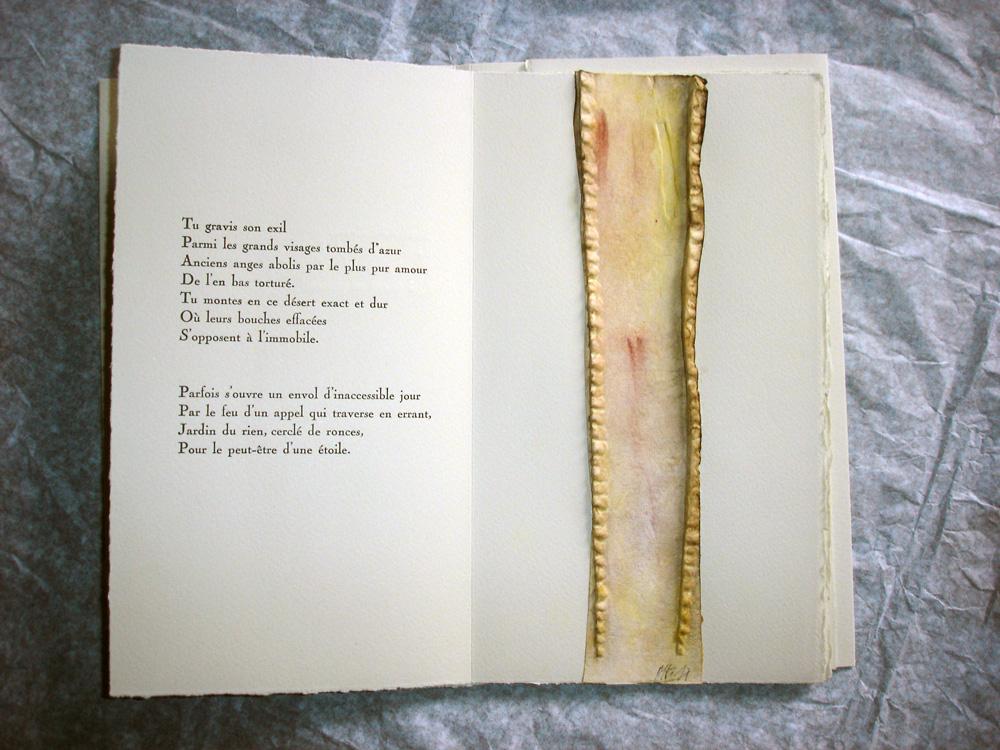 Tu gravis son exil
Parmi les grands visages tombés d'azur
Anciens anges abolis par le plus pur amour
De l'en bas torturé.
Tu montes en ce désert exact et dur
Où leurs bouches effacées
S'opposent à l'immobile.
Parfois s'ouvre un envol d'inaccessible jour
Par le feu d'un appel qui traverse en errant,
Jardin du rien, cerclé de ronces,
Pour le peut-être d'une étoile.